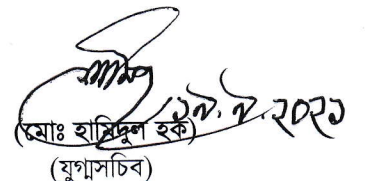 ১৯.৯.২০২১
(মোঃ হামিদুল হক)
(যুগ্মসচিব)